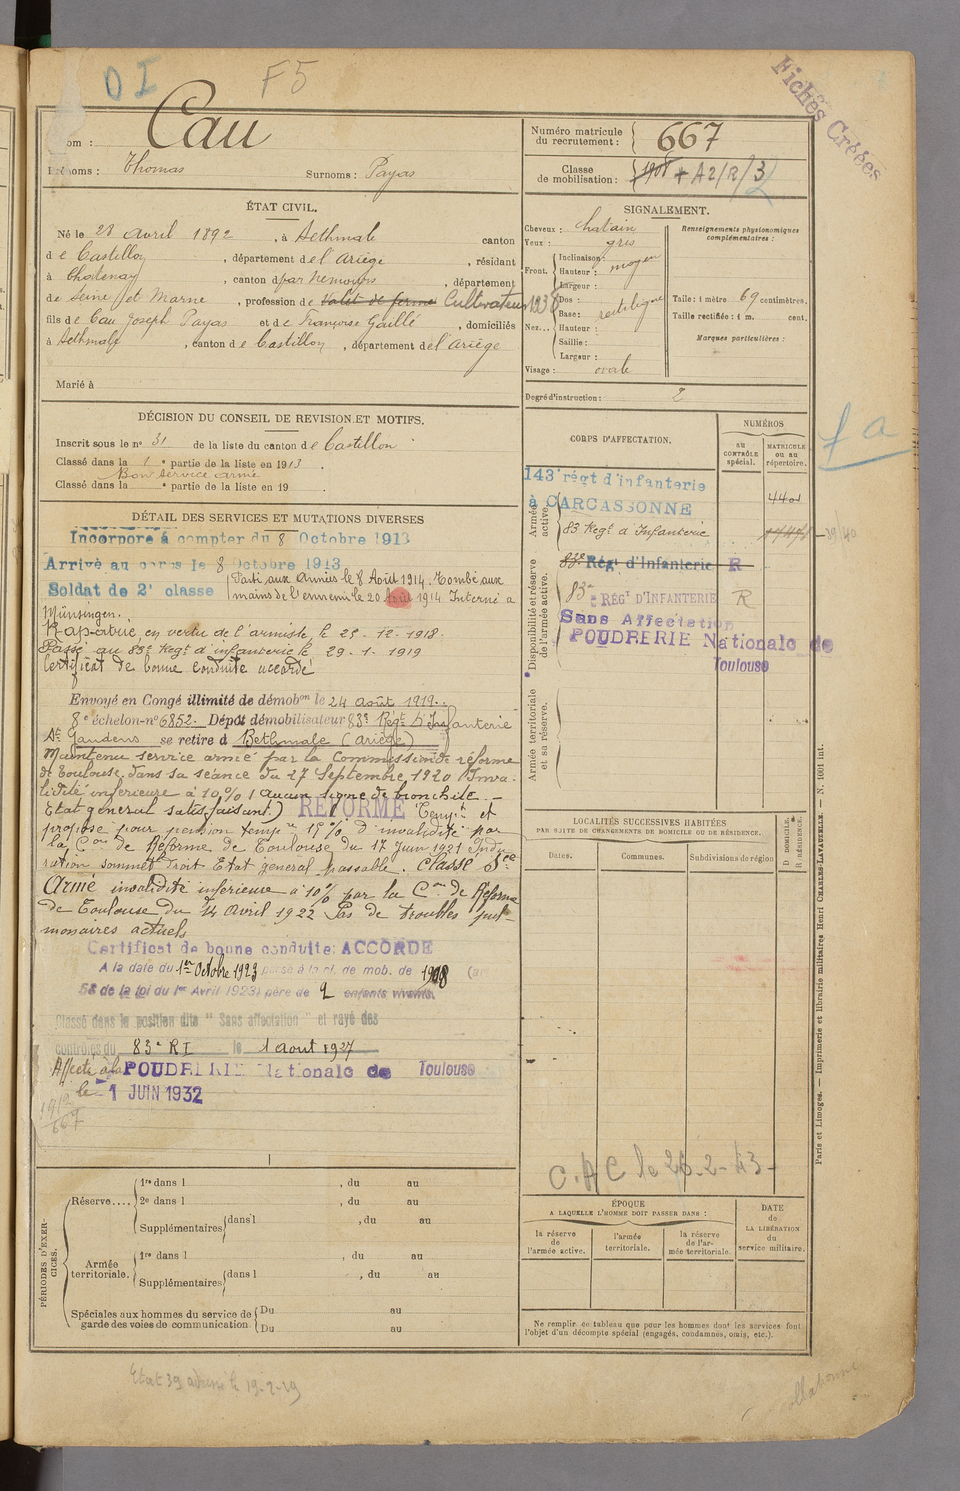 D I
F5
Fichés Créées
Nom : Cau
Prénoms : Thomas Surnoms : Payas
ÉTAT CIVIL.
Né le 28 avril 1892, à Bethmale canton
de Castillon, département de l'Ariège, résidant
à Chatenay, canton d par Nemours, département
de Seine et Marne, profession de valet de ferme Cultivateur 1938
fils de Cau Joseph Payas et de Françoise Gaillé, domiciliés
à Bethmale, canton de Castillon, département de l'Ariège
Marié à
DÉCISION DU CONSEIL DE REVISION ET MOTIFS.
Inscrit sous le n° 31 de la liste du canton de Castillon
Classé dans la 1e partie de la liste en 1913.
Bon service armé
Classé dans la e partie de la liste en 19
DÉTAIL DES SERVICES ET MUTATIONS DIVERSES
Incorporé à compter du 8 Octobre 1913
Arrivé au corps le 8 Octobre 1913
Soldat de 2e classe
Parti aux Armées le 8 Août 1914. Tombé aux
mains de l'ennemi le 20 Août 1914 Interné a
Münsingen.
Rapatrié, en vertu de l'armistice le 25-12-1918.
Passé au 83e Regt d'infanterie le 29-1-1919
Certificat de bonne conduite accordé
Envoyé en Congé illimité de démobon le 24 août 1919.
8e échelon-n° 6852. Dépôt démobilisateur 83e Régt D'Infanterie
St Gaudens se retire à Bethmale (Ariège)
Maintenu service armé par la Commission de réforme
de Toulouse dans sa séance du 27 Septembre 1920 Inva-
lidité inférieure à 10% (aucun signe de bronchite -
Etat général satisfaisant.) RÉFORMÉ Tempre et
proposé pour pension temp re 15% d'invalidité par
la Con de Réforme de Toulouse du 17 Juin 1921 Indu
ration sommet droit Etat général passable. Classé Sce
Armé invalidité inférieure à 10% par la Con de Réforme
de Toulouse du 14 Avril 1922 Pas de troubles pul-
monaires actuels
Certificat de bonne conduite: ACCORDÉ
A la date du 1er Octobre 1923 passé à la cl. de mob. de 1908 (art
58 de la loi du 1er Avril 1923) père de 2 enfants vivants.
Classé dans la position dite "Sans affectation" et rayé des
contrôles du 83e RI le 1 Aout 1927
Affecté à la POUDRERIE Nationale de Toulouse
le 1 JUIN 1932
1912
667
PÉRIODES D'EXERCICES.
Réserve....
1re dans l , du au
2e dans l , du au
Supplémentaires dans l , du au
Armée territoriale.
1re dans l , du au
Supplémentaires dans l , du au
Spéciales aux hommes du service de garde des voies de communication
Du au
Du au
Numéro matricule du recrutement : 667
Classe de mobilisation : 1908 + A2/R/3
SIGNALEMENT.
Cheveux : chatain
Yeux : gris
Front. Inclinaison:
Hauteur : moyen
Largeur :
Nez... Dos :
Base: rectiligne
Hauteur :
Saillie:
Largeur :
Visage : ovale
Renseignements physionomiques complémentaires :
Taille: 1 mètre 69 centimètres.
Taille rectifiée: 1 m. cent.
Marques particulières :
Degré d'instruction : 2
CORPS D'AFFECTATION.
NUMÉROS
AU CONTRÔLE spécial.
MATRICULE ou au répertoire.
Armée active.
143e régt d'infanterie
à CARCASSONNE
4401
83 Regt d'Infanterie
Disponibilité et réserve de l'armée active.
83e Régt d'Infanterie R
83e RÉGt D'INFANTERIE R
Sans Affectation
POUDRERIE Nationale de
Toulouse
Armée territoriale et sa réserve.
fa
LOCALITÉS SUCCESSIVES HABITÉES
PAR SUITE DE CHANGEMENTS DE DOMICILE OU DE RÉSIDENCE.
Dates. Communes. Subdivisions de région
D. DOMICILE. R. RÉSIDENCE.
C.A C le 26-2-43-
ÉPOQUE
A LAQUELLE L'HOMME DOIT PASSER DANS :
la réserve de l'armée active.
l'armée territoriale.
la réserve de l'armée territoriale.
DATE de LA LIBÉRATION du service militaire.
Ne remplir ce tableau que pour les hommes dont les services font
l'objet d'un décompte spécial (engagés, condamnés, omis, etc.).
Paris et Limoges. — Imprimerie et librairie militaires Henri CHARLES-LAVAUZELLE. — N. 1001 int.
Etat 39 le 19-2-29